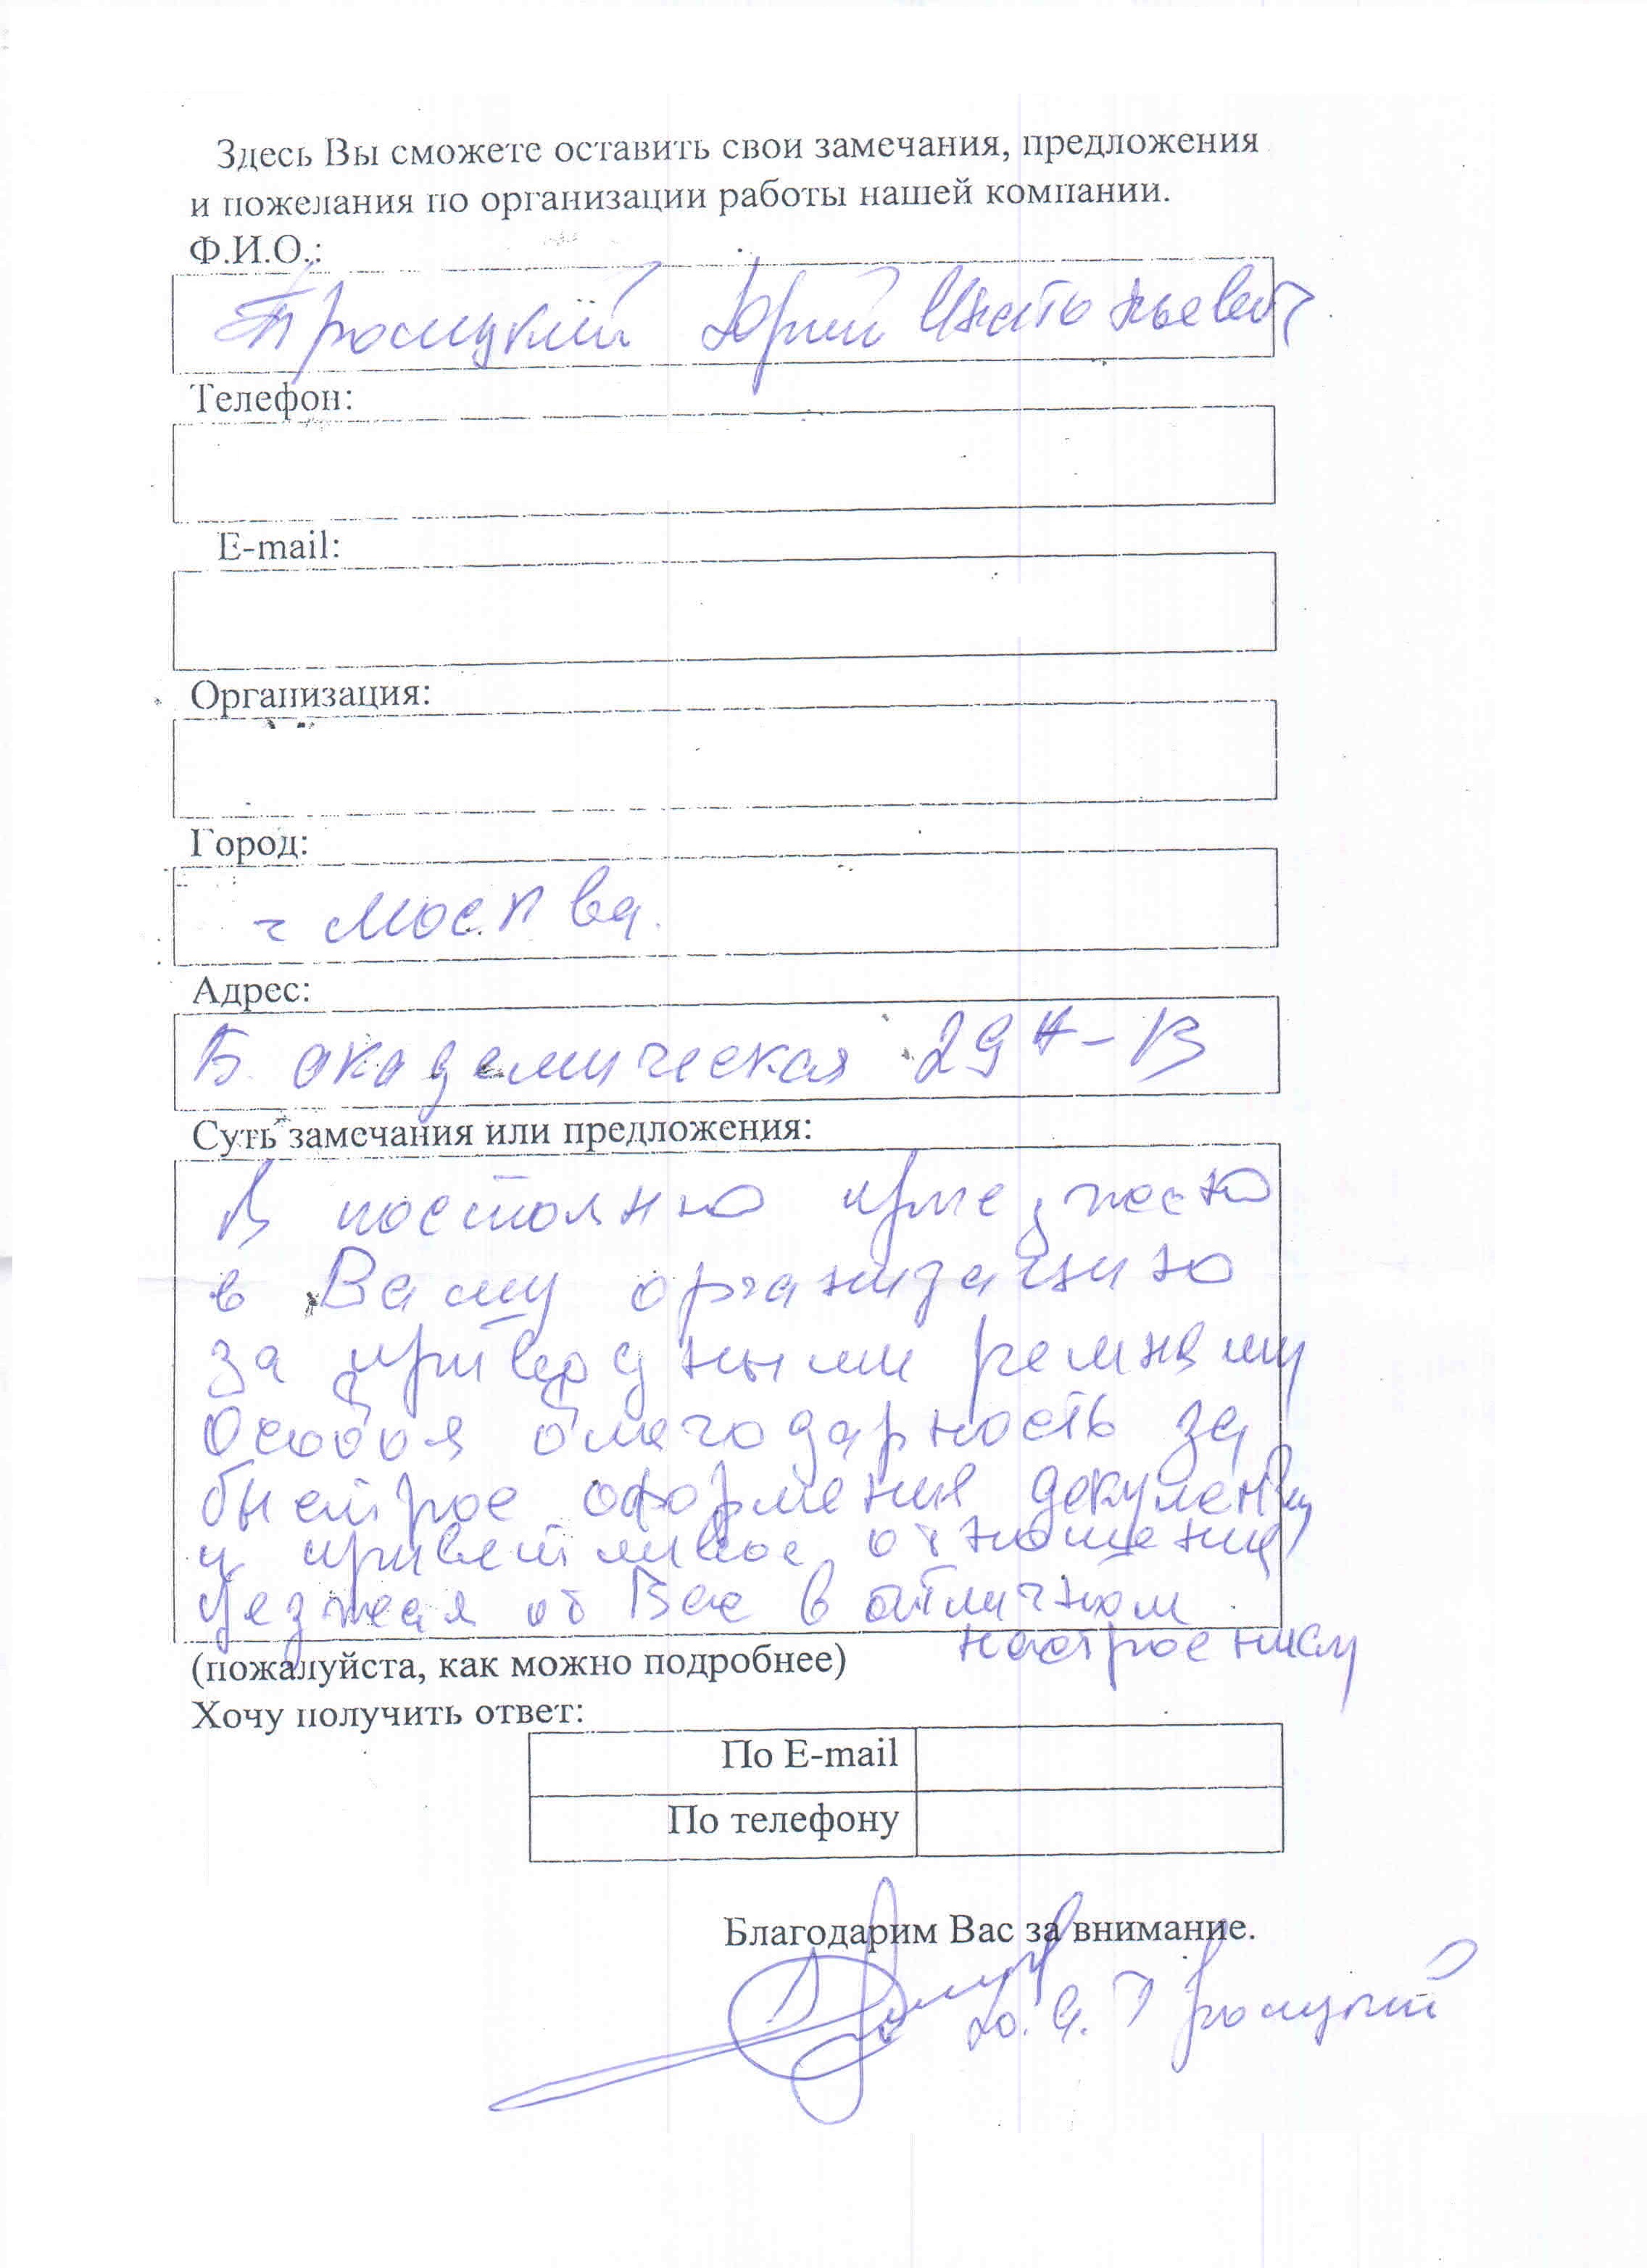 Здесь Вы сможете оставить свои замечания, предложения
и пожелания по организации работы нашей компании.
Ф.И.О.:
Троицкий Юрий Анатольевич
Телефон:
E-mail:
Организация:
Город:
г Москва.
Адрес:
Б. академическая 29
Суть замечания или предложения:
постоянно приезжаю
в Вашу организацию
за приводными ремнями
Особая благодарность за
быстрое оформления
и приветливое отношение
Уезжая от Вас в отличном
настроение
(пожалуйста, как можно подробнее)
Хочу получить ответ:
По E-mail
По телефону
Благодарим Вас за внимание.
Ю. А. Троицкий